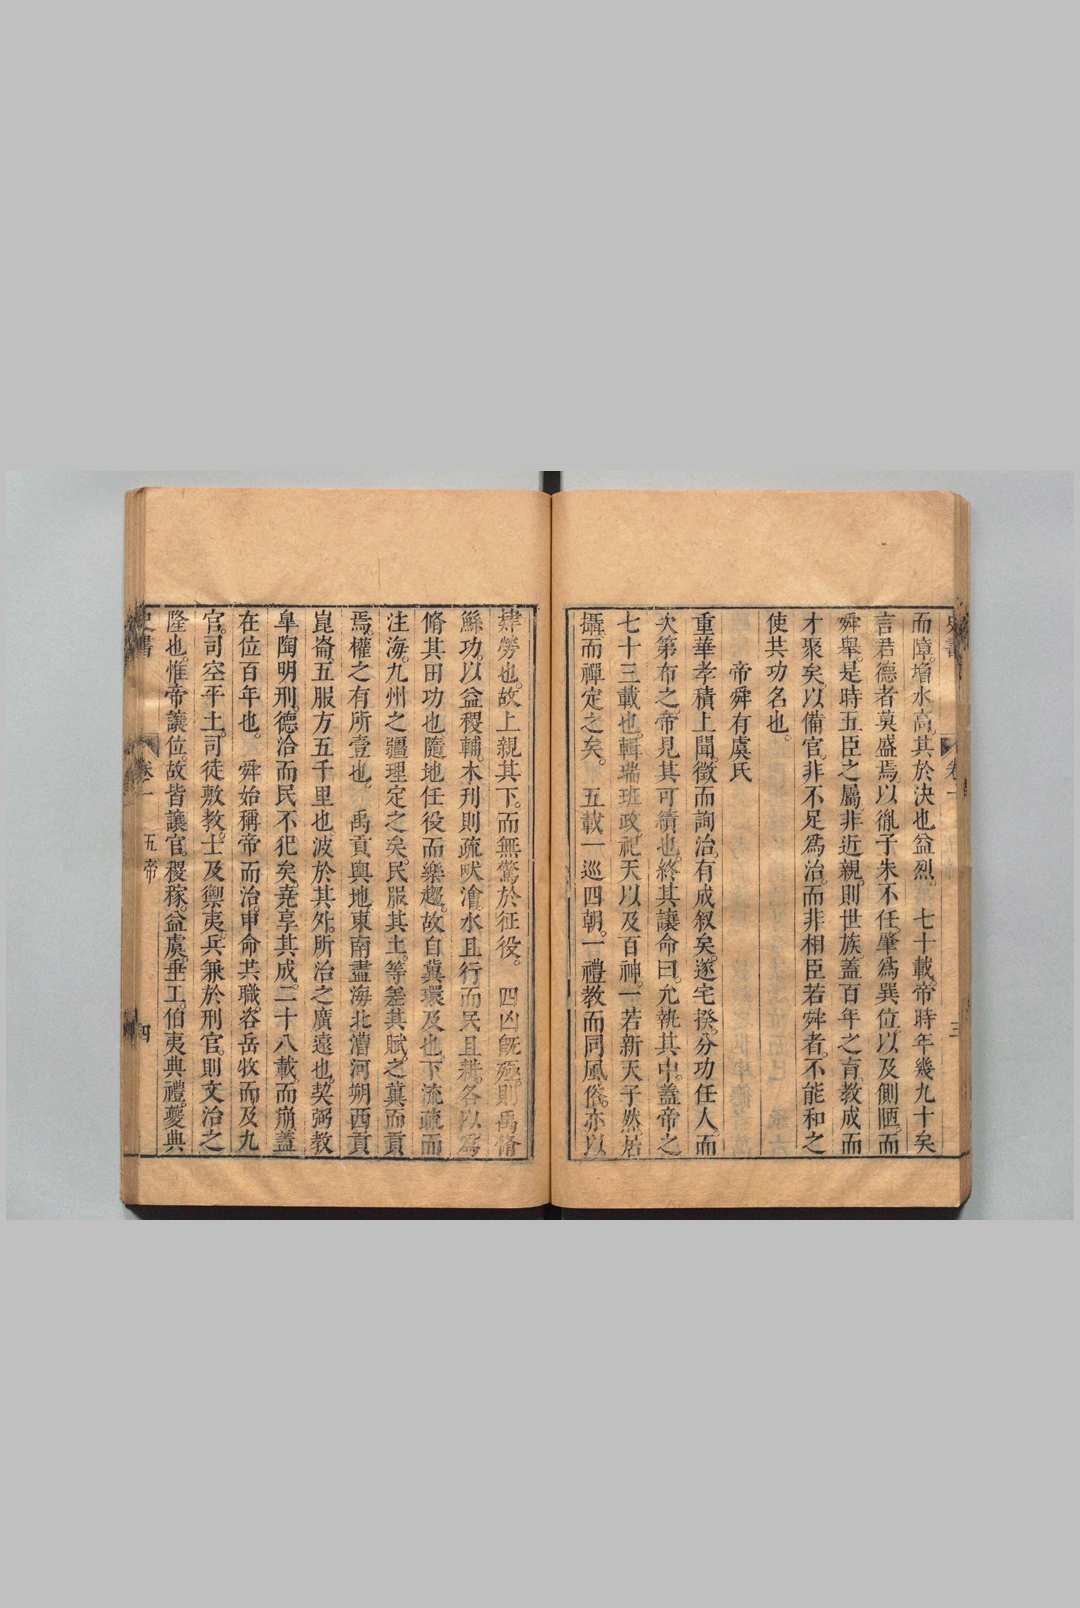 而障。增水高。其於決也益烈。七十載。帝時年幾九十矣
言君德者莫盛焉。以胤子朱不任。肇爲巽位。以及側陋。而
舜舉。是時五臣之屬。非近親。則世族。蓋百年之育教成而
才聚矣。以備官。非不足爲治。而非相臣若舜者。不能和之
使共功名也。
帝舜有虞氏
重華孝積上聞。徵而詢治。有成叙矣。遂宅揆。分功任人。而
次第布之。帝見其可績也。終其讓。命曰。允執其中。蓋帝之
七十三載也。輯瑞班政。祀天以及百神。一若新天子然。居
攝而禪定之矣。五載一巡四朝。一禮教而同風俗。亦以
肄勞也。故上親其下。而無驚於征役。四凶旣殛。則禹脩
鯀功。以益稷輔。木刊則疏畎澮。水且行。而民且耕。各以爲
脩其田功也。隨地任役而樂趨。故自冀環及也。下流疏而
注海。九州之疆理定之矣。民服其土。等差其賦。之冀而貢
焉。權之有所壹也。禹貢輿地。東南盡海。北漕河朔。西貢
崑崙。五服方五千里也。波於其外。所治之廣遠也。契弼教
皐陶明刑。德洽而民不犯矣。堯享其成。二十八載。而崩。蓋
在位百年也。舜始稱帝而治。申命共職。咨岳牧。而及九
官。司空平土。司徒敷教。士及輿夷兵兼於刑官。則文治之
隆也。惟帝讓位。故皆讓官。稷稼。益虞。垂工。伯夷典禮。夔典
史書
卷一
五帝
四
卷一
三